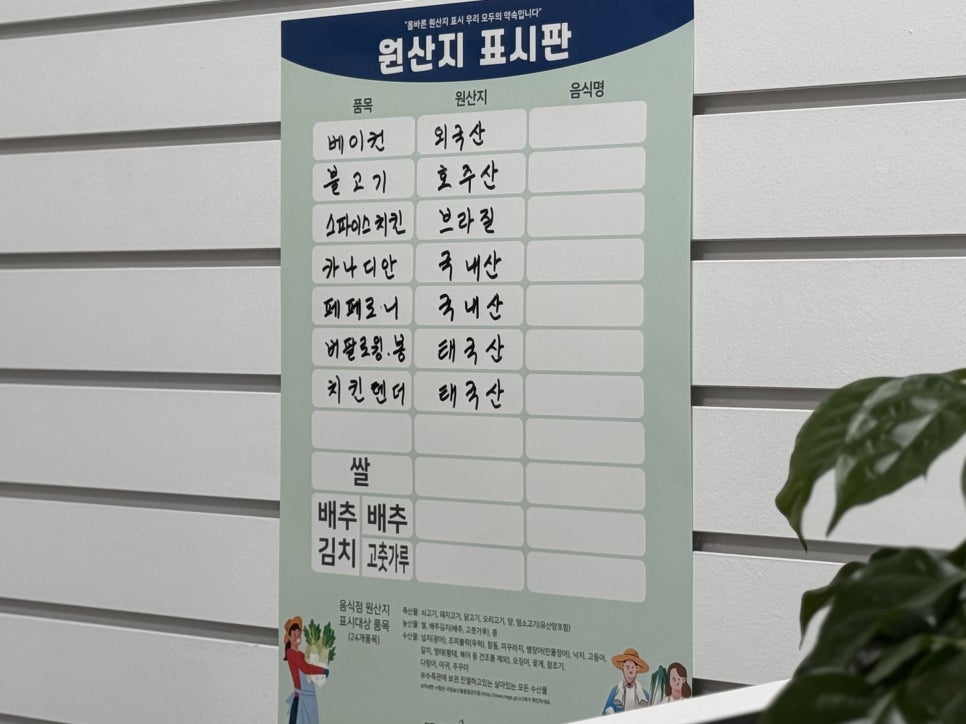 "올바른 원산지 표시 우리 모두의 약속입니다"
원산지 표시판
품목 원산지 음식명
베이컨 외국산
불고기 호주산
스파이스치킨 브라질
카나디안 국내산
페페로니 국내산
버팔로윙.봉 태국산
치킨텐더 태국산
쌀
배추 배추
김치 고춧가루
음식점 원산지
표시대상 품목
(24개품목)
축산물: 쇠고기, 돼지고기, 닭고기, 오리고기, 양, 염소고기(유산양포함)
농산물: 쌀, 배추김치(배추, 고춧가루), 콩
수산물: 넙치(광어), 조피볼락(우럭), 참돔, 미꾸라지, 뱀장어(민물장어), 낙지, 고등어,
갈치, 명태(황태, 북어 등 건조품 제외), 오징어, 꽃게, 참조기,
다랑어, 아귀, 주꾸미
※수족관에 보관 진열하고있는 살아있는 모든 수산물